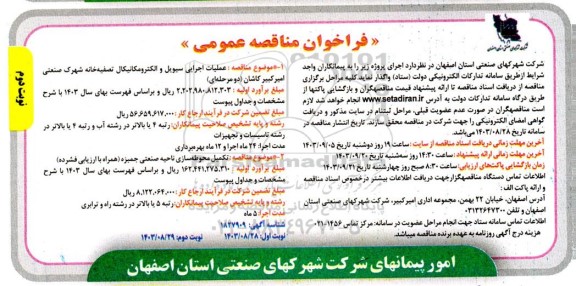 « فراخوان مناقصه عمومی »
نوبت دوم
شرکت شهرکهای صنعتی استان اصفهان در نظردارد اجرای پروژه زیر را به پیمانکاران واجد
شرایط ازطریق سامانه تدارکات الکترونیکی دولت (ستاد) واگذار نماید کلیه مراحل برگزاری
مناقصه از دریافت اسناد مناقصه تا ارائه پیشنهاد قیمت مناقصهگران و بازگشایی پاکتها از
طریق درگاه سامانه تدارکات دولت به آدرس www.setadiran.ir انجام خواهد شد لازم
است مناقصهگران در صورت عدم عضویت قبلی، مراحل ثبتنام در سایت مذکور و دریافت
گواهی امضای الکترونیکی را جهت شرکت در مناقصه محقق سازند. تاریخ انتشار مناقصه در
سامانه تاریخ ۱۴۰۳/۰۸/۲۸ می‌باشد.
آخرین مهلت زمانی دریافت اسناد مناقصه از سایت: ساعت ۱۹ روز دوشنبه تاریخ ۱۴۰۳/۰۹/۰۵
آخرین مهلت زمانی ارائه پیشنهاد: ساعت ۱۴:۳۰ روز سه‌شنبه تاریخ ۱۴۰۳/۰۹/۲۰
زمان بازگشایی پاکت‌های ارزیابی: ساعت ۸:۳۰ صبح روز چهارشنبه تاریخ ۱۴۰۳/۰۹/۲۱
اطلاعات تماس دستگاه مناقصهگزارجهت دریافت اطلاعات بیشتر درخصوص اسناد مناقصه
و ارائه پاکت الف:
آدرس اصفهان، خیابان ۲۲ بهمن، مجموعه اداری امیرکبیر، شرکت شهرکهای صنعتی استان
اصفهان و تلفن ۰۳۱۳۲۶۴۷۳۰۰
اطلاعات تماس سامانه ستاد جهت انجام مراحل عضویت در سامانه: مرکز تماس ۱۴۵۶-۰۲۱
هزینه درج آگهی روزنامه به عهده برنده مناقصه میباشد.
۱-«موضوع مناقصه: عملیات اجرایی سیویل و الکترومکانیکال تصفیه‌خانه شهرک صنعتی
امیرکبیر کاشان (دو مرحله‌ای)
مبلغ برآورد اولیه: ۲.۲۰۲.۹۸۰.۸۱۲.۳۰۳ ریال و براساس فهرست بهای سال ۱۴۰۳ با شرح
مشخصات و جداول پیوست
مبلغ تضمین شرکت در فرآیند ارجاع کار: ۵۶.۶۵۹.۶۱۷.۰۰۰ ریال
رشته و پایه تشخیص صلاحیت پیمانکاران: رتبه ۲ یا بالاتر در رشته آب و رتبه ۲ یا بالاتر در
رشته تاسیسات و تجهیزات
مدت اجرا: ۲۴ ماه اجرا و ۱۲ ماه بهره‌برداری
موضوع مناقصه: تکمیل محوطه‌سازی ناحیه صنعتی جمبزه (همراه با ارزیابی فشرده)
مبلغ برآورد اولیه: ریال و براساس فهرست بهای سال ۱۴۰۳ با شرح
مشخصات و جداول پیوست
مبلغ تضمین شرکت در فرآیند ارجاع کار: ۸.۱۲۲.۰۶۴.۰۰۰ ریال
رشته و پایه تشخیص صلاحیت پیمانکاران: رتبه ۵ یا بالاتر در رشته راه و ترابری
مدت اجرا: ۵ ماه
شناسه آگهی: ۱۸۲۷۹۰۹
نوبت اول: ۱۴۰۳/۰۸/۲۸ نوبت دوم: ۱۴۰۳/۰۸/۲۹
امور پیمانهای شرکت شهرکهای صنعتی استان اصفهان